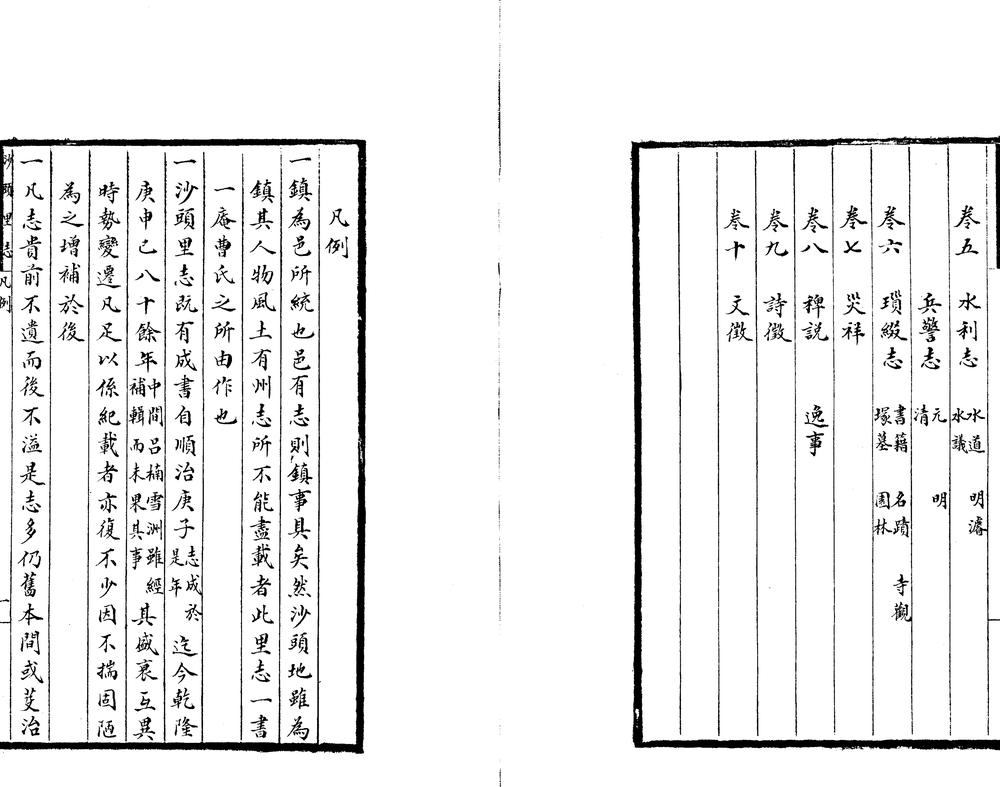 卷五　水利志　水道　明濬　水議
兵警志　元　明　清
卷六　瑣綴志　書籍　名蹟　寺觀　塚墓　園林
卷七　災祥
卷八　稗説　逸事
卷九　詩徵
卷十　文徵
凡例
一鎮為邑所統也邑有志則鎮事具矣然沙頭地雖為
鎮其人物風土有州志所不能盡載者此里志一書
一庵曹氏之所由作也
一沙頭里志既有成書自順治庚子志成於是年迄今乾隆
庚申已八十餘年中間呂楠雪洲雖經補輯而未果其事其盛衰互異
時勢變遷凡足以係紀載者亦復不少因不揣固陋
為之增補於後
一凡志貴前不遺而後不溢是志多仍舊本間或芟治
沙頭里志　凡例　一